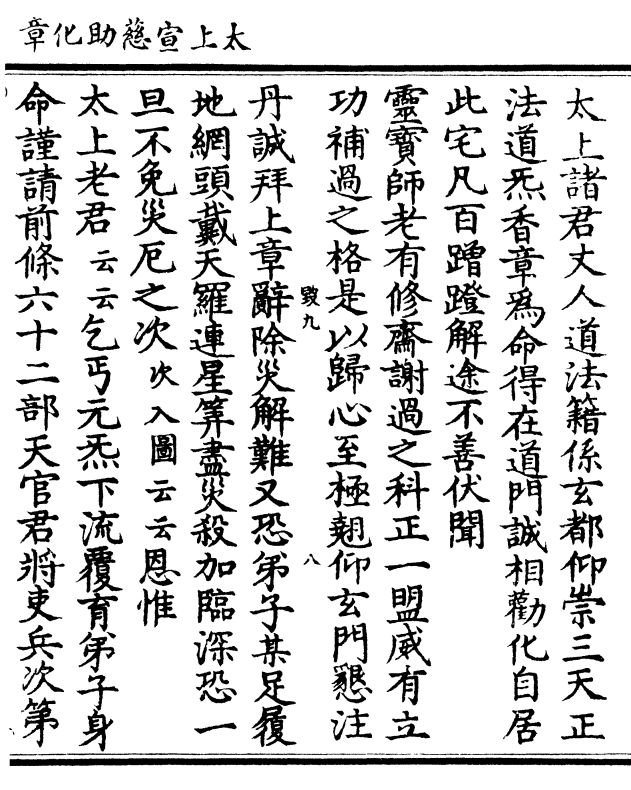 太上宣慈助化章
太上諸君丈人道法籍係玄都仰崇三天正
法道炁香章爲命得在道門誠相勸化自居
此宅凡百蹭蹬解途不善伏聞
靈寶師老有修齋謝過之科正一盟威有立
功補過之格是以歸心至極翹仰玄門懇注
毀九
八
丹誠拜上章辭除災解難又恐弟子某足履
地網頭戴天羅連星筭盡災殺加臨深恐一
旦不免災厄之次次入圖云云恩惟
太上老君云云乞丐元炁下流覆育弟子身
命謹請前條六十二部天官君將吏兵次第